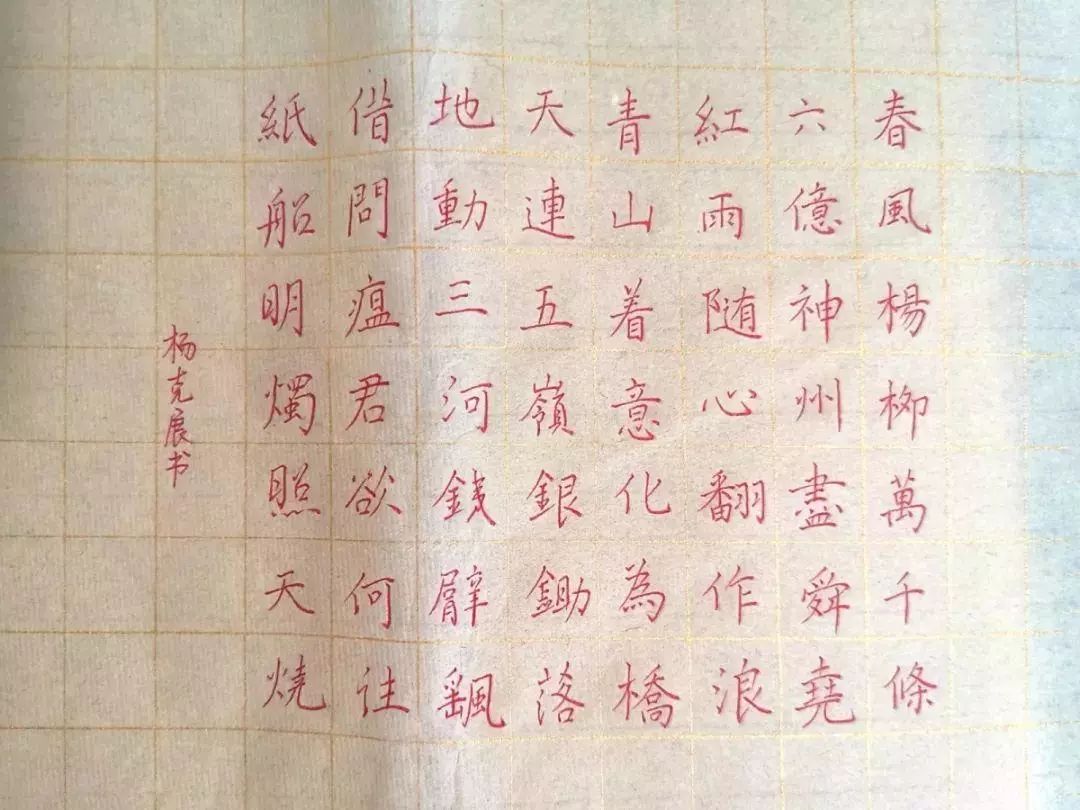 春風楊柳萬千條
六億神州盡舜堯
紅雨随心翻作浪
青山着意化為橋
天連五嶺銀鋤落
地動三河錢臂飆
借問瘟君欲何往
紙船明燭照天燒
杨克展书